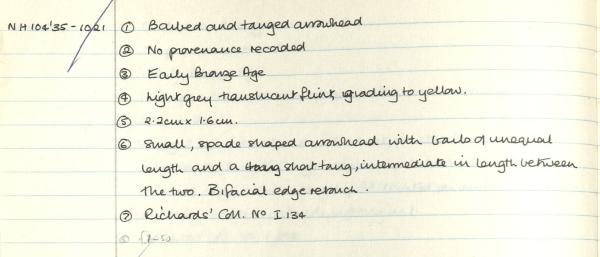 NH104'35-1021 ① Barbed and tanged arrowhead
② No provenance recorded
③ Early Bronze Age
④ Light grey translucent flint, grading to yellow.
⑤ 2.2cm x 1.6cm.
⑥ Small, spade shaped arrowhead with barbs of unequal
length and a short tang, intermediate in length between
the two. Bifacial edge retouch.
⑦ Richards' Coll. No I 134
⑧ £1-50